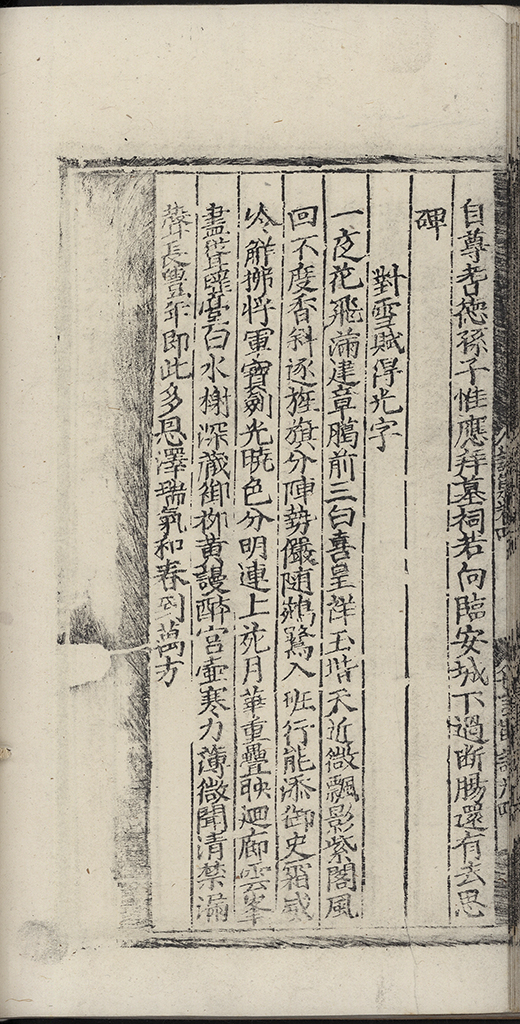 自尊考德孫子惟應拜墓祠若向臨安城下過断腸還有去思
碑
對雪賦得光字
一夜花飛滿建章臈前三白喜呈祥玉堦天近微飄影紫閣風
回不度香斜逐旌旗分陣勢儼随鵷鷺入班行能添御史霜威
冷觧拂将軍寶劍光曉色分明連上苑月華重疊映廻廊雲峯
盡聳瑶臺白水榭深蔵御柳黄謾酔宫壷寒力薄微聞清禁漏
聲長豊年即此多恩澤瑞氣和春到萬方